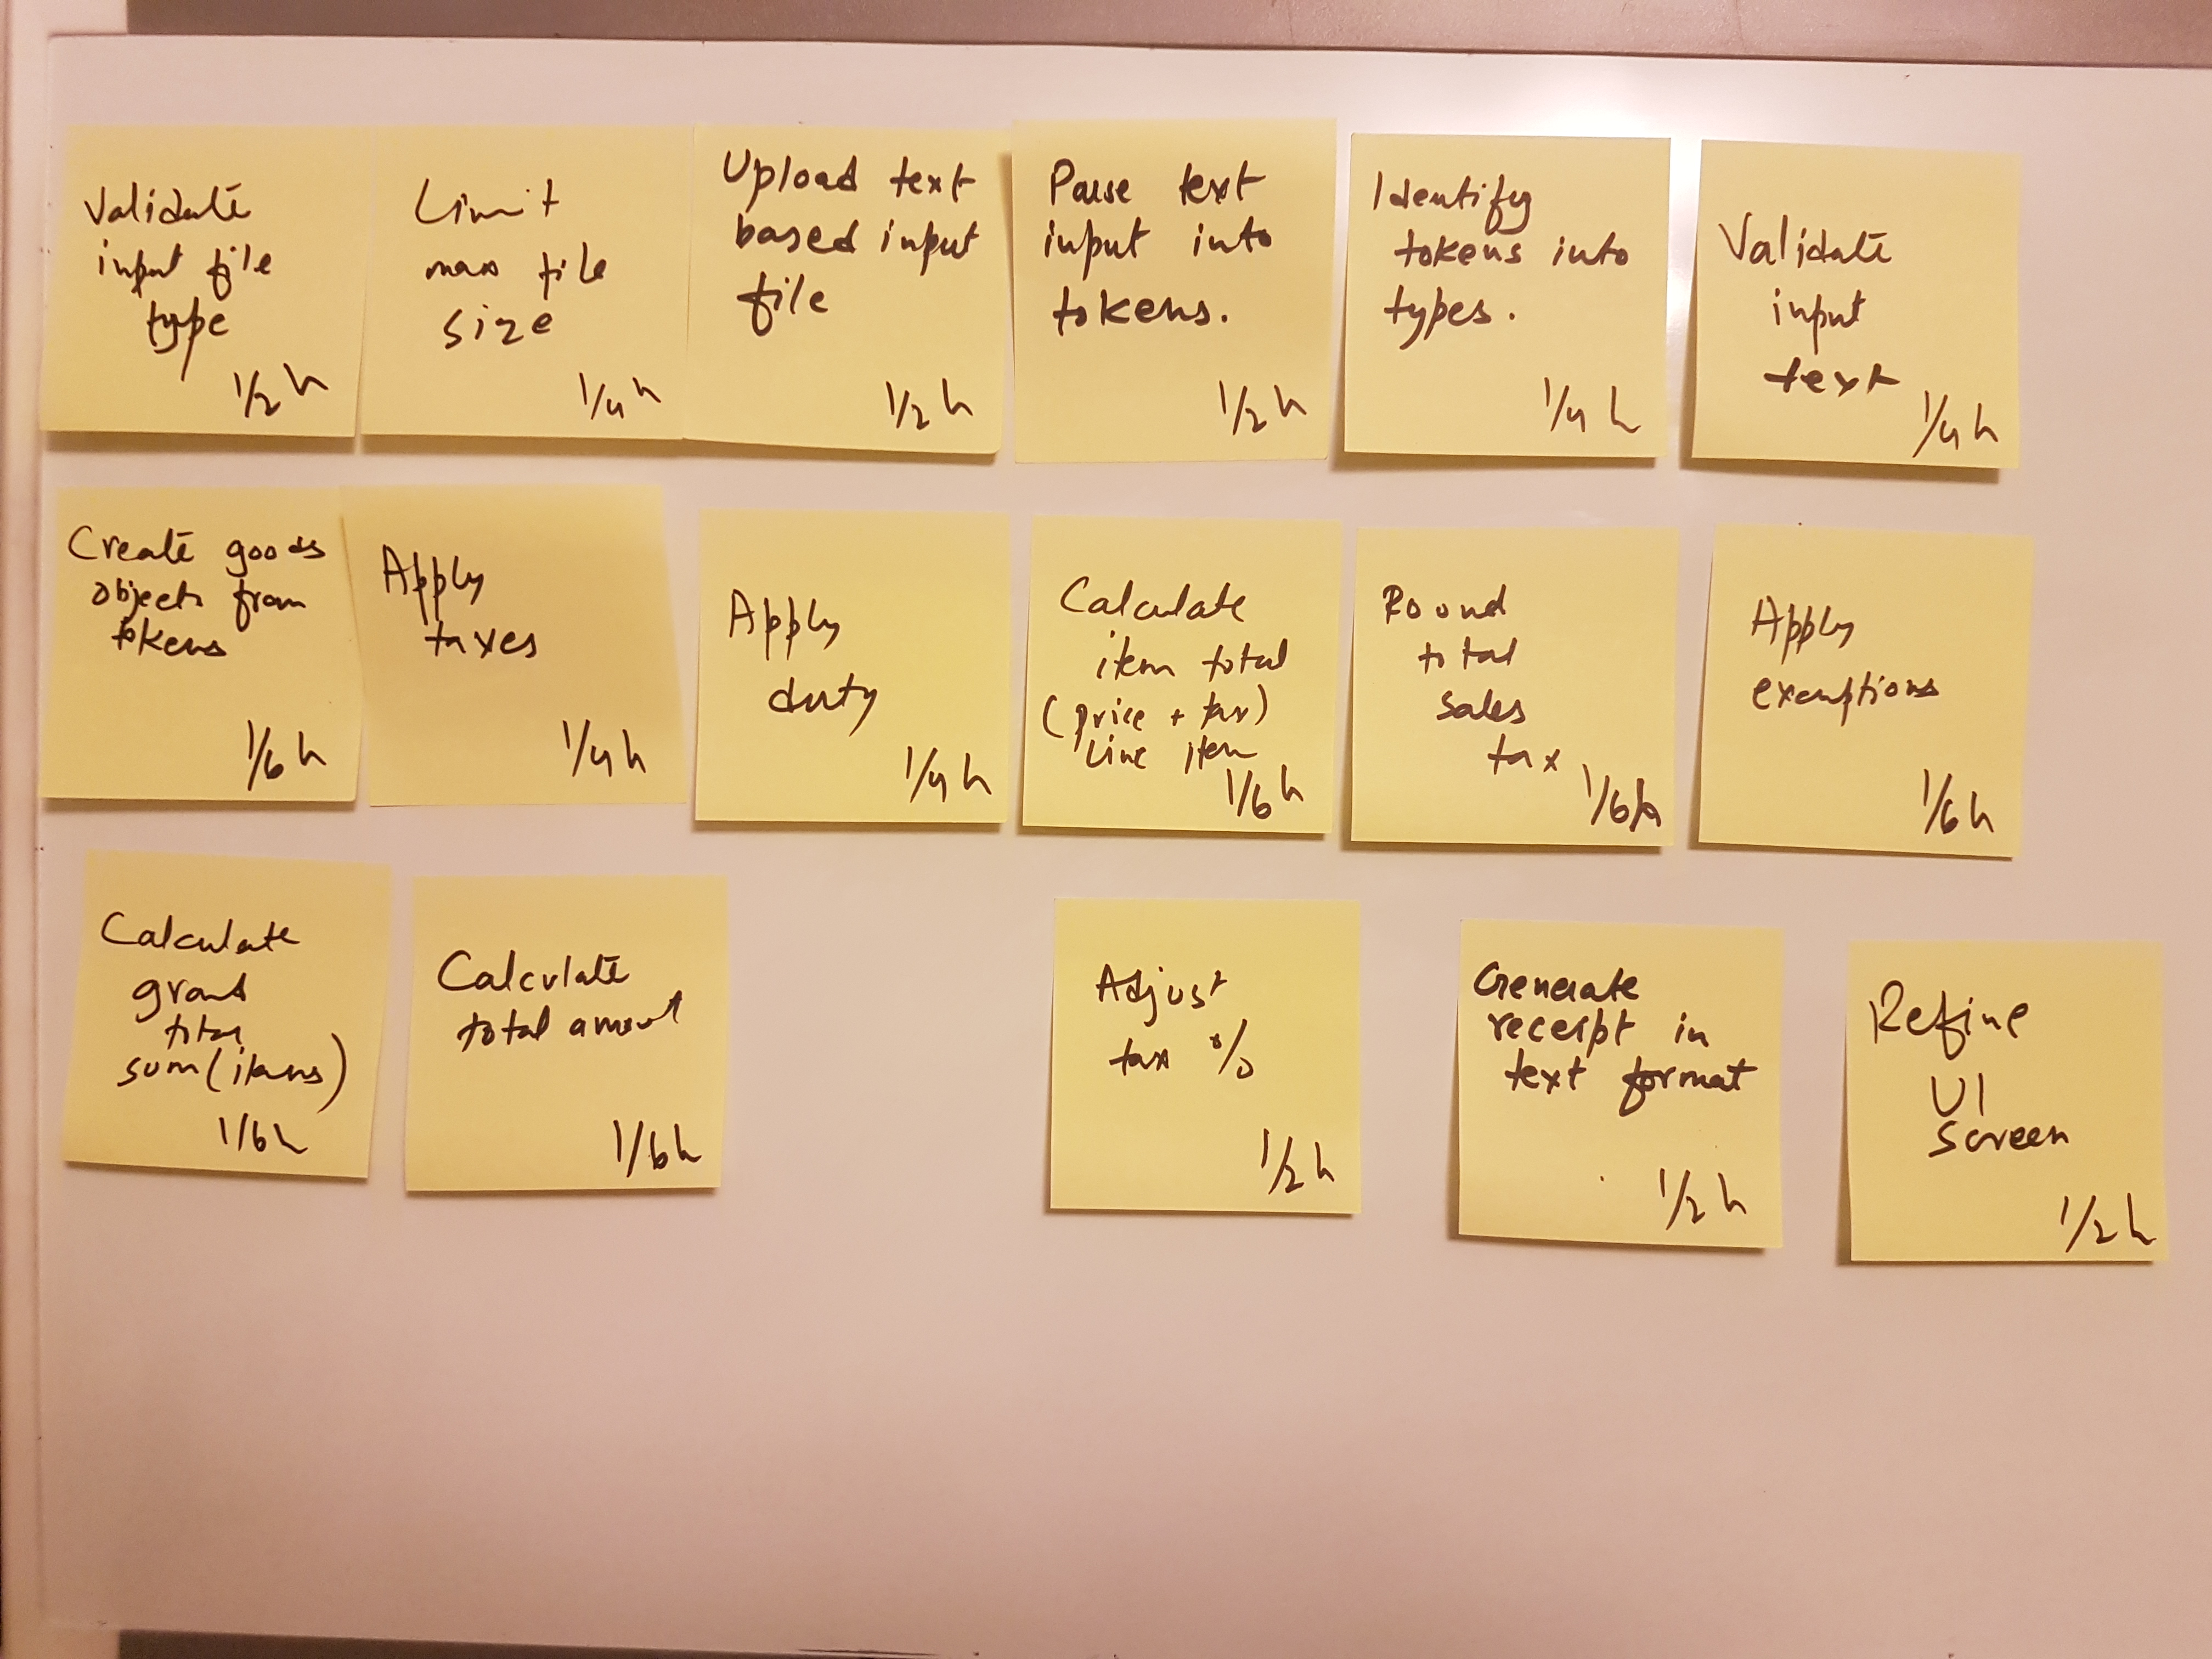 Validate
input file
type
1/2 h
Limit
max file
size
1/4 h
Upload text
based input
file
1/2 h
Parse text
input into
tokens.
1/2 h
Identify
tokens into
types.
1/4 h
Validate
input
text
1/4 h
Create goods
objects from
tokens
1/6 h
Apply
taxes
1/4 h
Apply
duty
1/4 h
Calculate
item total
(price + tax)
Line item
1/6 h
Round
total
sales
tax
1/6 h
Apply
exemptions
1/6 h
Calculate
grand
total
sum(items)
1/6 h
Calculate
total amount
1/6 h
Adjust
tax %
1/2 h
Generate
receipt in
text format
1/2 h
Refine
UI
screen
1/2 h